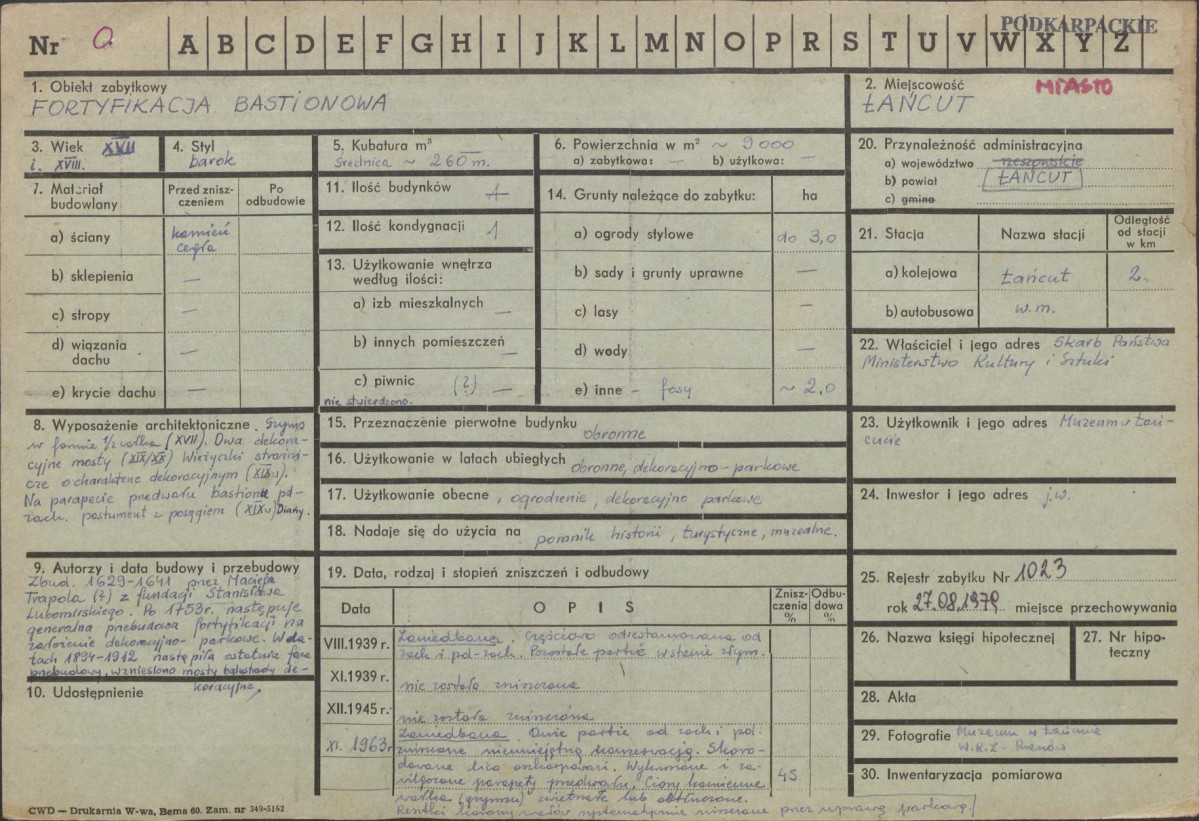 PODKARPACKIE
Nr 0 A B C D E F G H I J K L M N O P R S T U V W X Y Z
1. Obiekt zabytkowy
FORTYFIKACJA BASTIONOWA
2. Miejscowość MIASTO
ŁAŃCUT
3. Wiek XVII
i. XVIII.
4. Styl
barok
5. Kubatura m³
średnica ~ 260 m.
6. Powierzchnia w m² ~ 9000
a) zabytkowa: — b) użytkowa: —
7. Materiał budowlany
Przed zniszczeniem
Po odbudowie
a) ściany kamień
cegła
b) sklepienia —
c) stropy —
d) wiązania dachu —
e) krycie dachu —
11. Ilość budynków 1
12. Ilość kondygnacji 1
13. Użytkowanie wnętrza
według ilości:
a) izb mieszkalnych —
b) innych pomieszczeń —
c) piwnic (?) —
nie stwierdzono.
14. Grunty należące do zabytku: ha
a) ogrody stylowe do 3,0
b) sady i grunty uprawne —
c) lasy —
d) wody —
e) inne – fosy ~ 2,0
20. Przynależność administracyjna
a) województwo rzeszowskie
b) powiat ŁAŃCUT
c) gmina
21. Stacja Nazwa stacji Odległość od stacji w km
a) kolejowa Łańcut 2.
b) autobusowa w.m.
22. Właściciel i jego adres Skarb Państwa
Ministerstwo Kultury i Sztuki
8. Wyposażenie architektoniczne. Gzyms
w formie 1/2 wałka (XVII). Dwa dekora-
cyjne mosty (XIX/XX) Wieżyczki strażni-
cze o charakterze dekoracyjnym (XIX w).
Na parapecie przedwału bastionu pd-
zach. postument z posągiem (XIX w) Diany.
15. Przeznaczenie pierwotne budynku obronne
16. Użytkowanie w latach ubiegłych obronne, dekoracyjno-parkowe
17. Użytkowanie obecne, ogrodzenie, dekoracyjno parkowe
18. Nadaje się do użycia na pomnik historii, turystyczne, muzealne.
23. Użytkownik i jego adres Muzeum w Łań-
cucie
24. Inwestor i jego adres j.w.
9. Autorzy i data budowy i przebudowy
Zbud. 1629-1641 przez Macieja
Trapola (?) z fundacji Stanisława
Lubomirskiego. Po 1753r. następuje
generalna przebudowa fortyfikacji na
założenie dekoracyjno-parkowe. W la-
tach 1894-1912 nastąpiła ostatnia faza
przebudowy, wzniesiono mosty balustrady de-
koracyjne,
10. Udostępnienie
19. Data, rodzaj i stopień zniszczeń i odbudowy
Data OPIS Zniszczenia % Odbudowa %
VIII.1939 r. Zaniedbana. Częściowo odrestaurowana od
zach i pd-zach. Pozostałe partie w stanie złym.
XI.1939 r. nie została zniszczona
XII.1945 r. nie została zniszczona
XI. 1963r Zaniedbana. Duże partie od zach i pd-
zniszczone nieumiejętną konserwacją. Skoro-
dowane lica onkarpowań. Wykruszone i za-
wilgocone parapety przedwału. Ciosy kamienne
wałka (gzymsu) zwietrzałe lub obtłuczone. 45
Resztki korony wałów systematycznie niszczone przez uprawę parkową.
25. Rejestr zabytku Nr 1023
rok 27.08.1979 miejsce przechowywania
26. Nazwa księgi hipotecznej
27. Nr hipoteczny
28. Akta
29. Fotografie Muzeum w Łańcucie
W.K.Z - Rzeszów
30. Inwentaryzacja pomiarowa
CWD — Drukarnia W-wa, Bema 60. Zam. nr 349-5162